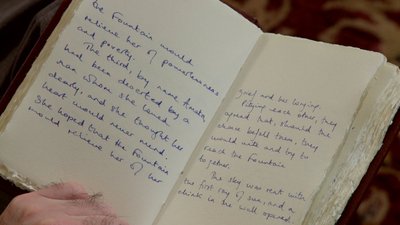 the Fountain would
relieve her of powerlessness
and poverty.
The third, by name Amata,
had been deserted by a
man whom she loved
dearly, and she thought her
heart would never mend.
She hoped that the Fountain
would relieve her of her
grief and her longing.
Pitying each other, they
agreed that, should the
chance befall them, they
would unite and try to
reach the Fountain
together.
The sky was rent with
the first ray of sun, and a
chink in the wall opened.